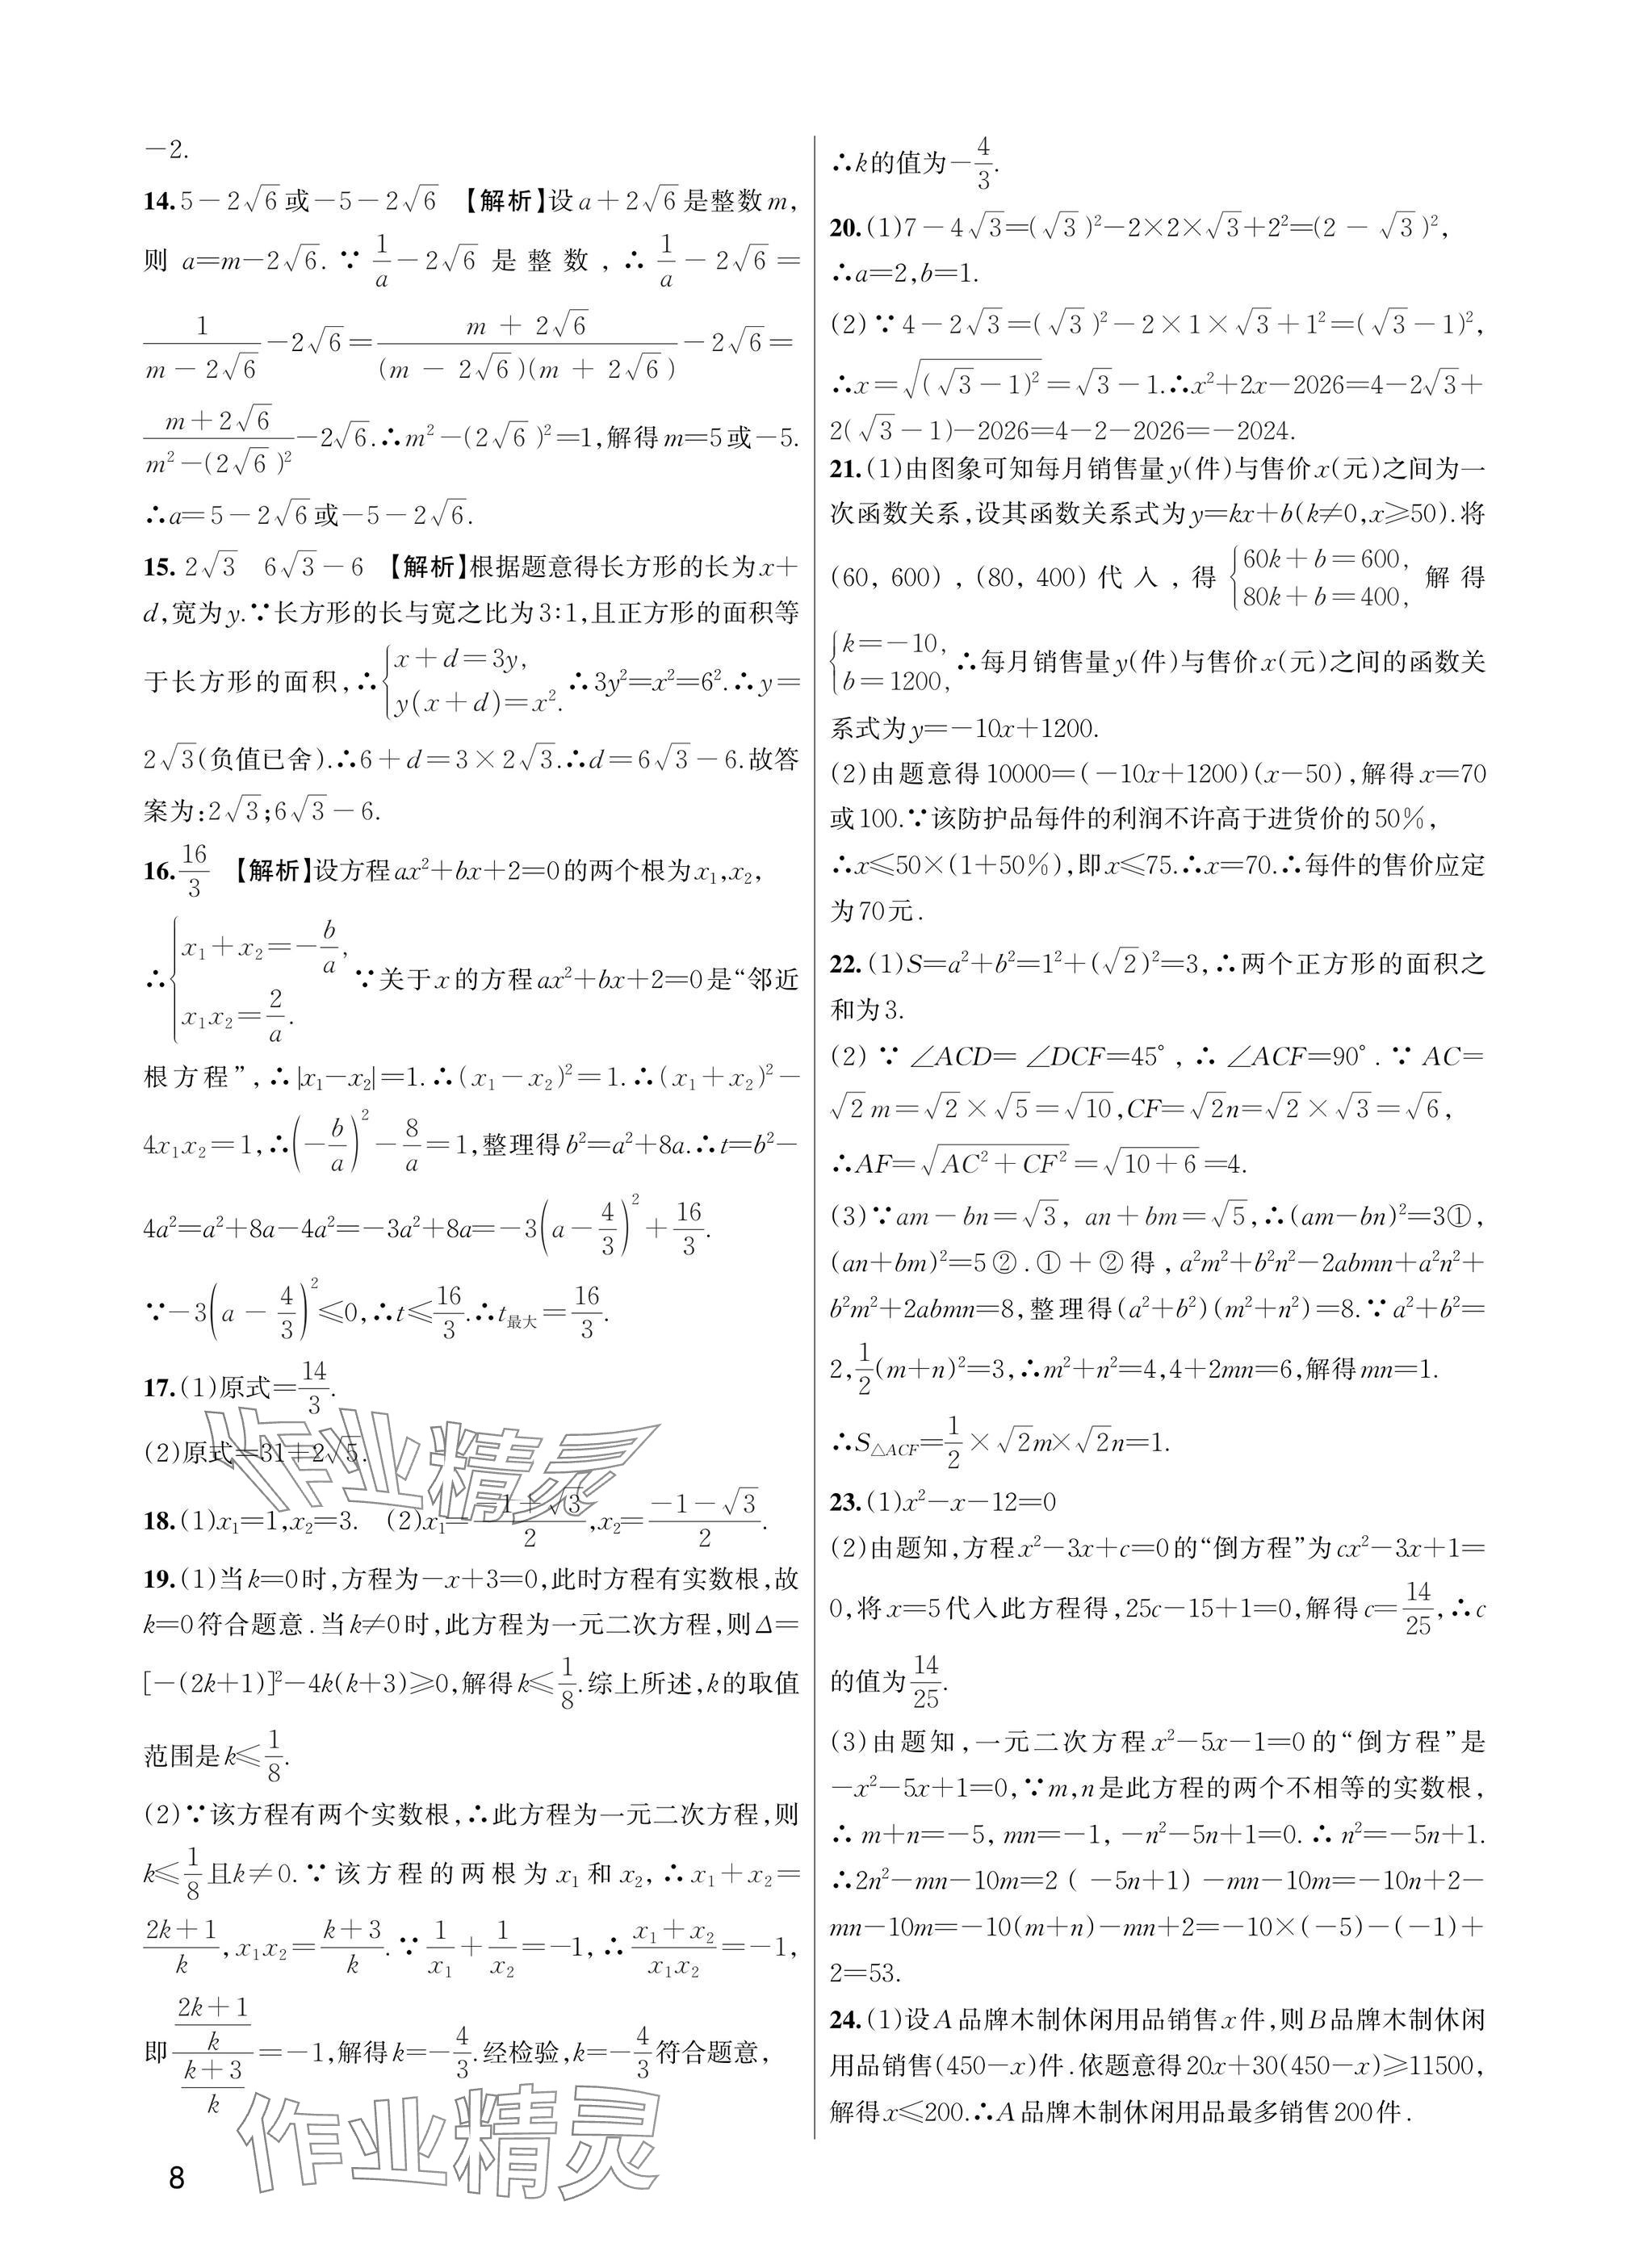 -2.
14.5-2√6或-5-2√6 【解析】设a+2√6是整数m,
则 a=m-2√6.∵1/a-2√6 是整数,∴1/a-2√6=
1/(m-2√6)-2√6=(m+2√6)/((m-2√6)(m+2√6))-2√6=
(m+2√6)/(m²-(2√6)²)-2√6.∴m²-(2√6)²=1,解得m=5或-5.
∴a=5-2√6或-5-2√6.
15. 2√3 6√3-6 【解析】根据题意得长方形的长为x+
d,宽为y.∵长方形的长与宽之比为3∶1,且正方形的面积等
于长方形的面积,∴{x+d=3y, y(x+d)=x². ∴3y²=x²=6².∴y=
2√3(负值已舍).∴6+d=3×2√3.∴d=6√3-6.故答
案为:2√3;6√3-6.
16.16/3 【解析】设方程ax²+bx+2=0的两个根为x₁,x₂,
∴{x₁+x₂=-b/a, x₁x₂=2/a. ∵关于x的方程ax²+bx+2=0是“邻近
根方程”,∴|x₁-x₂|=1.∴(x₁-x₂)²=1.∴(x₁+x₂)²-
4x₁x₂=1,∴(-b/a)²-8/a=1,整理得b²=a²+8a.∴t=b²-
4a²=a²+8a-4a²=-3a²+8a=-3(a-4/3)²+16/3.
∵-3(a-4/3)²≤0,∴t≤16/3.∴t最大=16/3.
17.(1)原式=14/3.
(2)原式=31+2√5.
18.(1)x₁=1,x₂=3. (2)x₁=(-1+√3)/2,x₂=(-1-√3)/2.
19.(1)当k=0时,方程为-x+3=0,此时方程有实数根,故
k=0符合题意.当k≠0时,此方程为一元二次方程,则Δ=
[-(2k+1)]²-4k(k+3)≥0,解得k≤1/8.综上所述,k的取值
范围是k≤1/8.
(2)∵该方程有两个实数根,∴此方程为一元二次方程,则
k≤1/8且k≠0.∵该方程的两根为x₁和x₂,∴x₁+x₂=
(2k+1)/k,x₁x₂=(k+3)/k.∵1/x₁+1/x₂=-1,∴(x₁+x₂)/(x₁x₂)=-1,
即((2k+1)/k)/((k+3)/k)=-1,解得k=-4/3.经检验,k=-4/3符合题意,
∴k的值为-4/3.
20.(1)7-4√3=(√3)²-2×2×√3+2²=(2-√3)²,
∴a=2,b=1.
(2)∵4-2√3=(√3)²-2×1×√3+1²=(√3-1)²,
∴x=√((√3-1)²)=√3-1.∴x²+2x-2026=4-2√3+
2(√3-1)-2026=4-2-2026=-2024.
21.(1)由图象可知每月销售量y(件)与售价x(元)之间为一
次函数关系,设其函数关系式为y=kx+b(k≠0,x≥50).将
(60,600),(80,400)代入,得{60k+b=600, 80k+b=400, 解得
{k=-10, b=1200, ∴每月销售量y(件)与售价x(元)之间的函数关
系式为y=-10x+1200.
(2)由题意得10000=(-10x+1200)(x-50),解得x=70
或100.∵该防护品每件的利润不许高于进货价的50%,
∴x≤50×(1+50%),即x≤75.∴x=70.∴每件的售价应定
为70元.
22.(1)S=a²+b²=1²+(√2)²=3,∴两个正方形的面积之
和为3.
(2)∵∠ACD=∠DCF=45°,∴∠ACF=90°.∵AC=
√2m=√2×√5=√10,CF=√2n=√2×√3=√6,
∴AF=√(AC²+CF²)=√(10+6)=4.
(3)∵am-bn=√3,an+bm=√5,∴(am-bn)²=3①,
(an+bm)²=5②.①+②得,a²m²+b²n²-2abmn+a²n²+
b²m²+2abmn=8,整理得(a²+b²)(m²+n²)=8.∵a²+b²=
2,1/2(m+n)²=3,∴m²+n²=4,4+2mn=6,解得mn=1.
∴S△ACF=1/2×√2m×√2n=1.
23.(1)x²-x-12=0
(2)由题知,方程x²-3x+c=0的“倒方程”为cx²-3x+1=
0,将x=5代入此方程得,25c-15+1=0,解得c=14/25,∴c
的值为14/25.
(3)由题知,一元二次方程x²-5x-1=0的“倒方程”是
-x²-5x+1=0,∵m,n是此方程的两个不相等的实数根,
∴m+n=-5,mn=-1,-n²-5n+1=0.∴n²=-5n+1.
∴2n²-mn-10m=2(-5n+1)-mn-10m=-10n+2-
mn-10m=-10(m+n)-mn+2=-10×(-5)-(-1)+
2=53.
24.(1)设A品牌木制休闲用品销售x件,则B品牌木制休闲
用品销售(450-x)件.依题意得20x+30(450-x)≥11500,
解得x≤200.∴A品牌木制休闲用品最多销售200件.
作业精灵
作业精灵
8